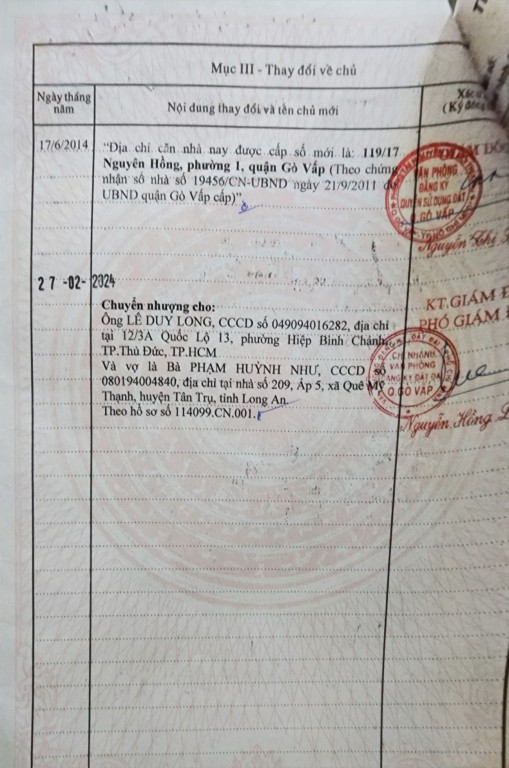 Mục III - Thay đổi về chủ
Ngày tháng năm
Nội dung thay đổi và tên chủ mới
Xác
(Ký đóng
17/6/2014
"Địa chỉ căn nhà nay được cấp số mới là: 119/17
Nguyên Hồng, phường 1, quận Gò Vấp (Theo chứng
nhận số nhà số 19456/CN-UBND ngày 21/9/2011 do
UBND quận Gò Vấp cấp)"
VĂN PHÒNG
ĐĂNG KÝ
QUYỀN SỬ DỤNG ĐẤT
Q.GÒ VẤP
Nguyễn Thị
27-02-2024
Chuyển nhượng cho:
Ông LÊ DUY LONG, CCCD số 049094016282, địa chỉ
tại 12/3A Quốc Lộ 13, phường Hiệp Bình Chánh,
TP.Thủ Đức, TP.HCM
Và vợ là Bà PHẠM HUỲNH NHƯ, CCCD số
080194004840, địa chỉ tại nhà số 209, Ấp 5, xã Quê Mỹ
Thạnh, huyện Tân Trụ, tỉnh Long An.
Theo hồ sơ số 114099.CN.001.
KT.GIÁM Đ
PHÓ GIÁM
CHI NHÁNH
VĂN PHÒNG
ĐĂNG KÝ ĐẤT ĐAI
Q.GÒ VẤP
Nguyễn Hồng